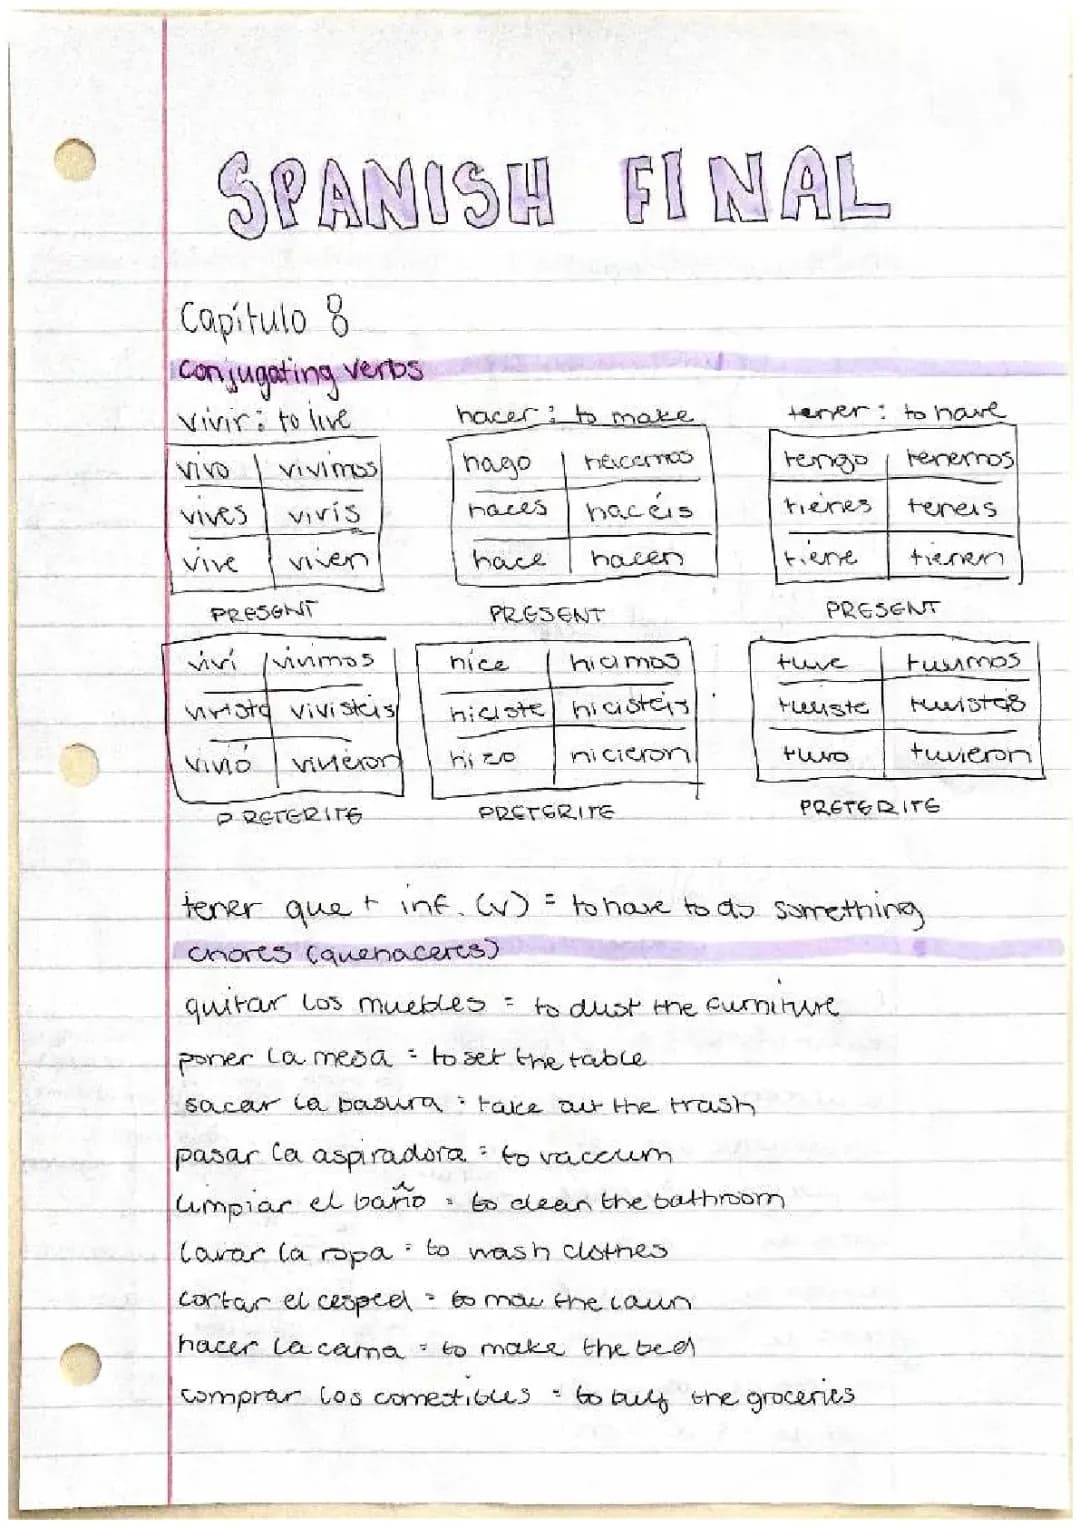 SPANISH FINAL
Capítulo 8
Conjugating verbs
vivir: to live hacer: to make tener: to have
vivo vivimos hago hacemos tengo tenemos
vives vivís haces hacéis tienes teneis
vive viven hace hacen tiene tienen
PRESENT PRESENT PRESENT
viví vivimos hice hicimos tuve tuvimos
vivisteis hiciste hicisteis tuviste
vivió vivieron hizo hicieron tuvo tuvieron
PRETERITE PRETERITE PRETERITE
tener que + inf. (v) = to have to do something
chores (quehaceres)
quitar los muebles = to dust the furniture
poner la mesa = to set the table
sacar la basura = take out the trash
pasar la aspiradora = to vaccum
limpiar el baño = to clean the bathroom
lavar la ropa = to wash clothes
cortar el cesped = to mow the laun
hacer la cama = to make the bed
comprar los comestibles = to buy the groceries